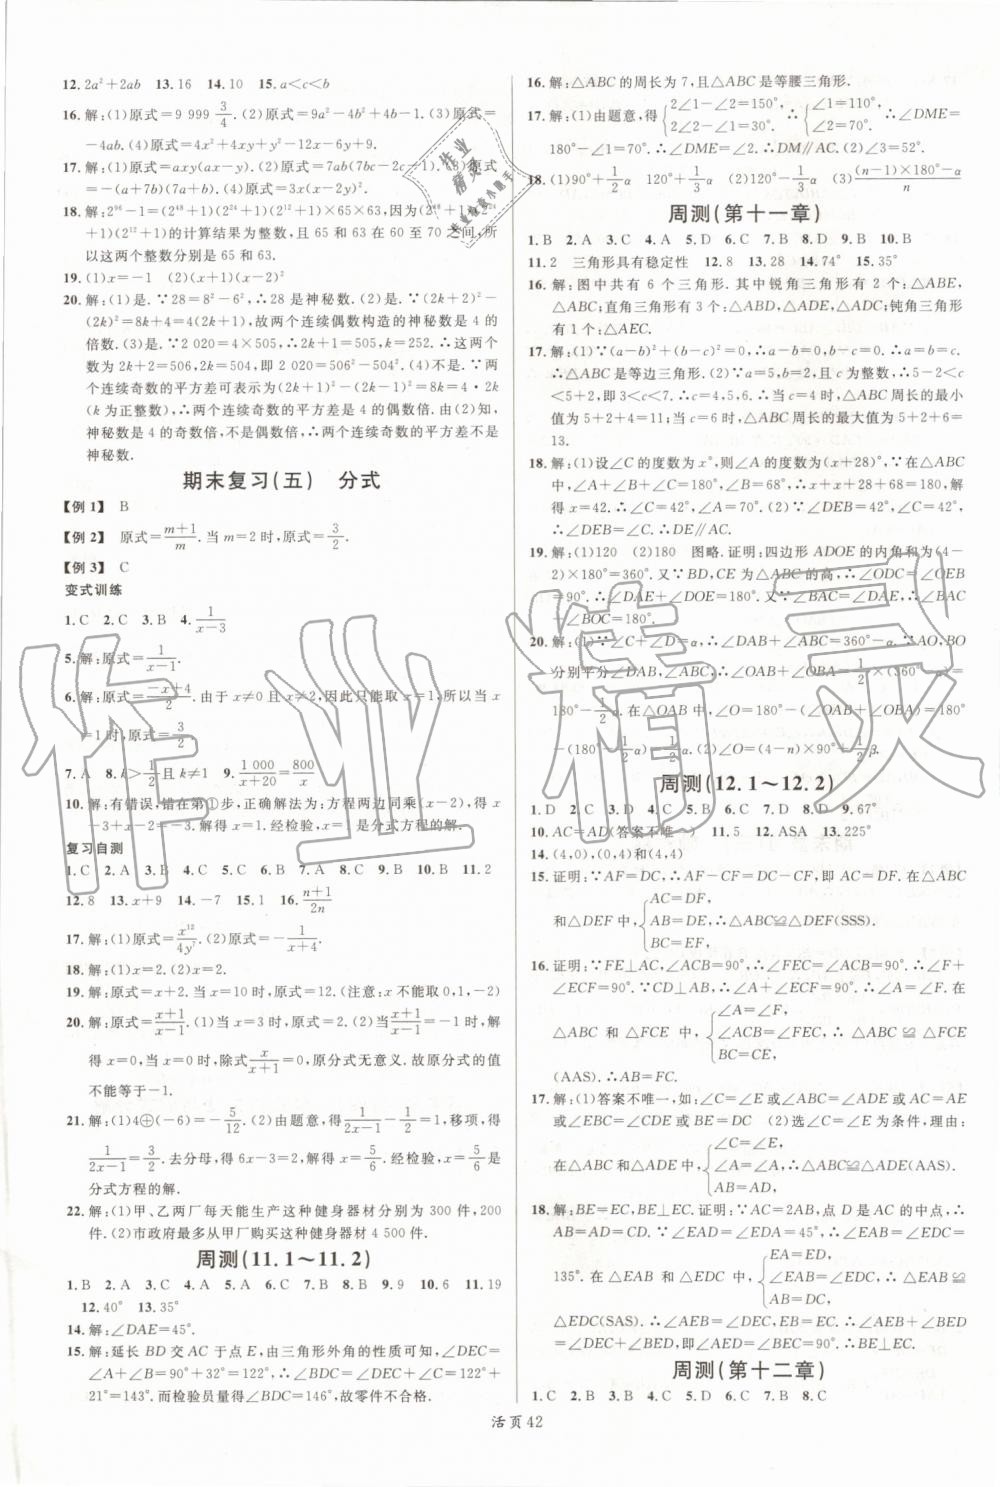 12. 2a²+2ab 13. 16 14. 10 15. a<c<b
16. 解:(1)原式=9 999 3/4. (2)原式=9a²-4b²+4b-1. (3)原式=
-4ab. (4)原式=4x²+4x³-12x-6y+9.
17. 解:(1)原式=axy(ax-y). (2)原式=7ab(7bc-2c-1). (3)原式=
-(a+7b)(7a+b). (4)原式=3x(x-2y)².
18. 解:2⁹⁶-1=(2⁴⁸+1)(2²⁴+1)(2¹²+1)×65×63,因为(2⁴⁸+1)(2²⁴
+1)(2¹²+1)的计算结果为整数,且65和63在60至70之间,所
以这两个整数分别是65和63.
19. (1)x=-1 (2)x(x-2)²
20. 解:(1)是. ∵28=8²-6²,∴28是神秘数. (2)是. ∵(2k+2)²-
(2k)²=8k+4=4(2k+1),故两个连续偶数构造的神秘数是4的
倍数. (3)是. ∵2 020=4×505,∴2k+1=505,k=252. ∴这两个
数为2k+2=506,2k=504,即2 020=506²-504². (4)不是. 两
个连续奇数的平方差可表示为(2k+1)²-(2k-1)²=8k=4·2k
(k为正整数),∴两个连续奇数的平方差是4的偶数倍. 由(2)知,
神秘数是4的奇数倍,不是偶数倍,∴两个连续奇数的平方差不是
神秘数.
期末复习(五) 分式
【例1】 B
【例2】 原式=(m+1)/m. 当m=2时,原式=3/2.
【例3】 C
变式训练
1. C 2. C 3. B 4. 1/(x-3)
5. 解:原式=1/(x-1).
6. 解:原式=(-x+4)/2. 由于x≠0且x≠2,因此只能取x=1,所以当x
=1时,原式=3/2.
7. A 8. k>1/2且k≠1 9. 1 000/(x+20)=800/x
10. 解:有错误,错在第①步,正确解法为:方程两边同乘(x-2),得x
-3+x-2=-3. 解得x=1. 经检验,x=1是分式方程的解.
复习自测
1. C 2. A 3. B 4. C 5. C 6. B 7. A 8. C 9. A 10. B 11. 2
12. 8 13. x+9 14. -7 15. 1 16. (n+1)/2n
17. 解:(1)原式=x¹²/4y⁷. (2)原式=-1/(x+4).
18. 解:(1)x=2. (2)x=2.
19. 解:原式=x+2. 当x=10时,原式=12. (注意:x不能取0,1,-2)
20. 解:原式=(x+1)/(x-1). (1)当x=3时,原式=2. (2)当(x+1)/(x-1)=-1时,解
得x=0,当x=0时,除式x/(x+1)=0,原分式无意义. 故原分式的值
不能等于-1.
21. 解:(1)4⊕(-6)=-5/12. (2)由题意,得1/(2x-1)-1/2=1,移项,得
1/(2x-1)=3/2. 去分母,得6x-3=2. 解得x=5/6. 经检验,x=5/6是
分式方程的解.
22. 解:(1)甲、乙两厂每天能生产这种健身器材分别为300件,200
件. (2)市政府最多从甲厂购买这种健身器材4 500件.
周测(11.1~11.2)
1. B 2. A 3. C 4. A 5. A 6. C 7. B 8. B 9. 9 10. 6 11. 19
12. 40° 13. 35°
14. 解:∠DAE=45°.
15. 解:延长BD交AC于点E,由三角形外角的性质可知,∠DEC=
∠A+∠B=90°+32°=122°,∴∠BDC=∠DEC+∠C=122°+
21°=143°,而检验员量得∠BDC=146°,故零件不合格.
16. 解:△ABC的周长为7,且△ABC是等腰三角形.
17. 解:(1)由题意,得{2∠1-∠2=150°, 2∠2-∠1=30°. ∴{∠1=110°, ∠2=70°. ∴∠DME=
180°-∠1=70°. ∴∠DME=∠2. ∴DM∥AC. (2)∠3=52°.
18. (1)90°+1/2α 120°+1/3α (2)120°-1/3α (3)((n-1)×180°-α)/n
周测(第十一章)
1. B 2. A 3. C 4. A 5. D 6. C 7. B 8. D 9. B 10. B
11. 2 三角形具有稳定性 12. 8 13. 28 14. 74° 15. 35°
16. 解:图中共有6个三角形. 其中锐角三角形有2个:△ABE,
△ABC;直角三角形有3个:△ABD,△ADE,△ADC;钝角三角形
有1个:△AEC.
17. 解:(1)∵(a-b)²+(b-c)²=0,∴a-b=0,b-c=0. ∴a=b=c.
∴△ABC是等边三角形. (2)∵a=5,b=2,且c为整数,∴5-2<c
<5+2,即3<c<7. ∴c=4,5,6. ∴当c=4时,△ABC周长的最小
值为5+2+4=11;当c=6时,△ABC周长的最大值为5+2+6=
13.
18. 解:(1)设∠C的度数为x°,则∠A的度数为(x+28)°,在△ABC
中,∠A+∠B+∠C=180°,∠B=68°,∴x+x+28+68=180,解
得x=42. ∴∠C=42°,∠A=70°. (2)∵∠DEB=42°,∠C=42°,
∴∠DEB=∠C. ∴DE∥AC.
19. 解:(1)120 (2)180 图略. 证明:四边形ADOE的内角和为(4-
2)×180°=360°. 又∵BD,CE为△ABC的高,∴∠ODC=∠OEB
=90°. ∴∠DAE+∠DOE=180°. 又∵∠BAC=∠DAE,∴∠BAC
+∠BOC=180°.
20. 解:(1)∵∠C+∠D=α,∴∠DAB+∠ABC=360°-α. ∵AO,BO
分别平分∠DAB,∠ABC. ∴∠OAB+∠OBA=1/2×(360°-α)=
180°-1/2α. 在△OAB中,∠O=180°-(∠OAB+∠OBA)=180°
-(180°-1/2α)=1/2α. (2)∠O=(4-n)×90°+1/2β.
周测(12.1~12.2)
1. D 2. C 3. A 4. D 5. C 6. B 7. D 8. D 9. 67°
10. AC=AD(答案不唯一) 11. 5 12. ASA 13. 225°
14. (4,0),(0,4)和(4,4)
15. 证明:∵AF=DC,∴AF-CF=DC-CF,即AC=DF. 在△ABC
和△DEF中,{AC=DF, AB=DE, BC=EF, ∴△ABC≌△DEF(SSS).
16. 证明:∵FE⊥AC,∠ACB=90°,∴∠FEC=∠ACB=90°. ∴∠F+
∠ECF=90°. ∵CD⊥AB,∴∠A+∠ECF=90°. ∴∠A=∠F. 在
△ABC和△FCE中,{∠A=∠F, ∠ACB=∠FEC, BC=CE, ∴△ABC≌△FCE
(AAS). ∴AB=FC.
17. 解:(1)答案不唯一,如:∠C=∠E或∠ABC=∠ADE或AC=AE
或∠EBC=∠CDE或BE=DC (2)选∠C=∠E为条件,理由:
在△ABC和△ADE中,{∠C=∠E, ∠A=∠A, AB=AD, ∴△ABC≌△ADE(AAS).
18. 解:BE=EC,BE⊥EC. 证明:∵AC=2AB,点D是AC的中点,∴
AB=AD=CD. ∵∠EAD=∠EDA=45°,∴∠EAB=∠EDC=
135°. 在△EAB和△EDC中,{EA=ED, ∠EAB=∠EDC, AB=DC, ∴△EAB≌
△EDC(SAS). ∴∠AEB=∠DEC,EB=EC. ∴∠AEB+∠BED
=∠DEC+∠BED,即∠AED=∠BEC=90°. ∴BE⊥EC.
周测(第十二章)
1. C 2. B 3. B 4. A 5. D 6. C 7. B 8. C
活页 42
作业精灵